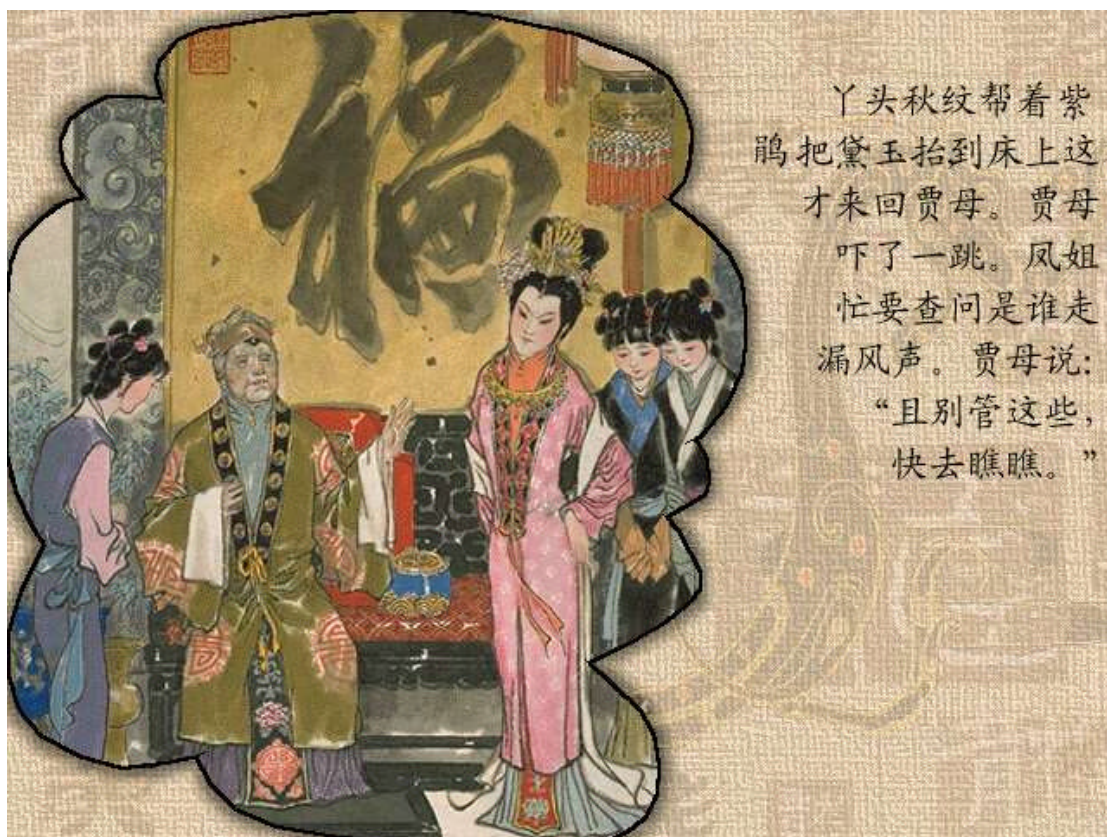 福
丫头秋纹帮着紫
鹃把黛玉抬到床上这
才来回贾母。贾母
吓了一跳。凤姐
忙要查问是谁走
漏风声。贾母说：
“且别管这些，
快去瞧瞧。”